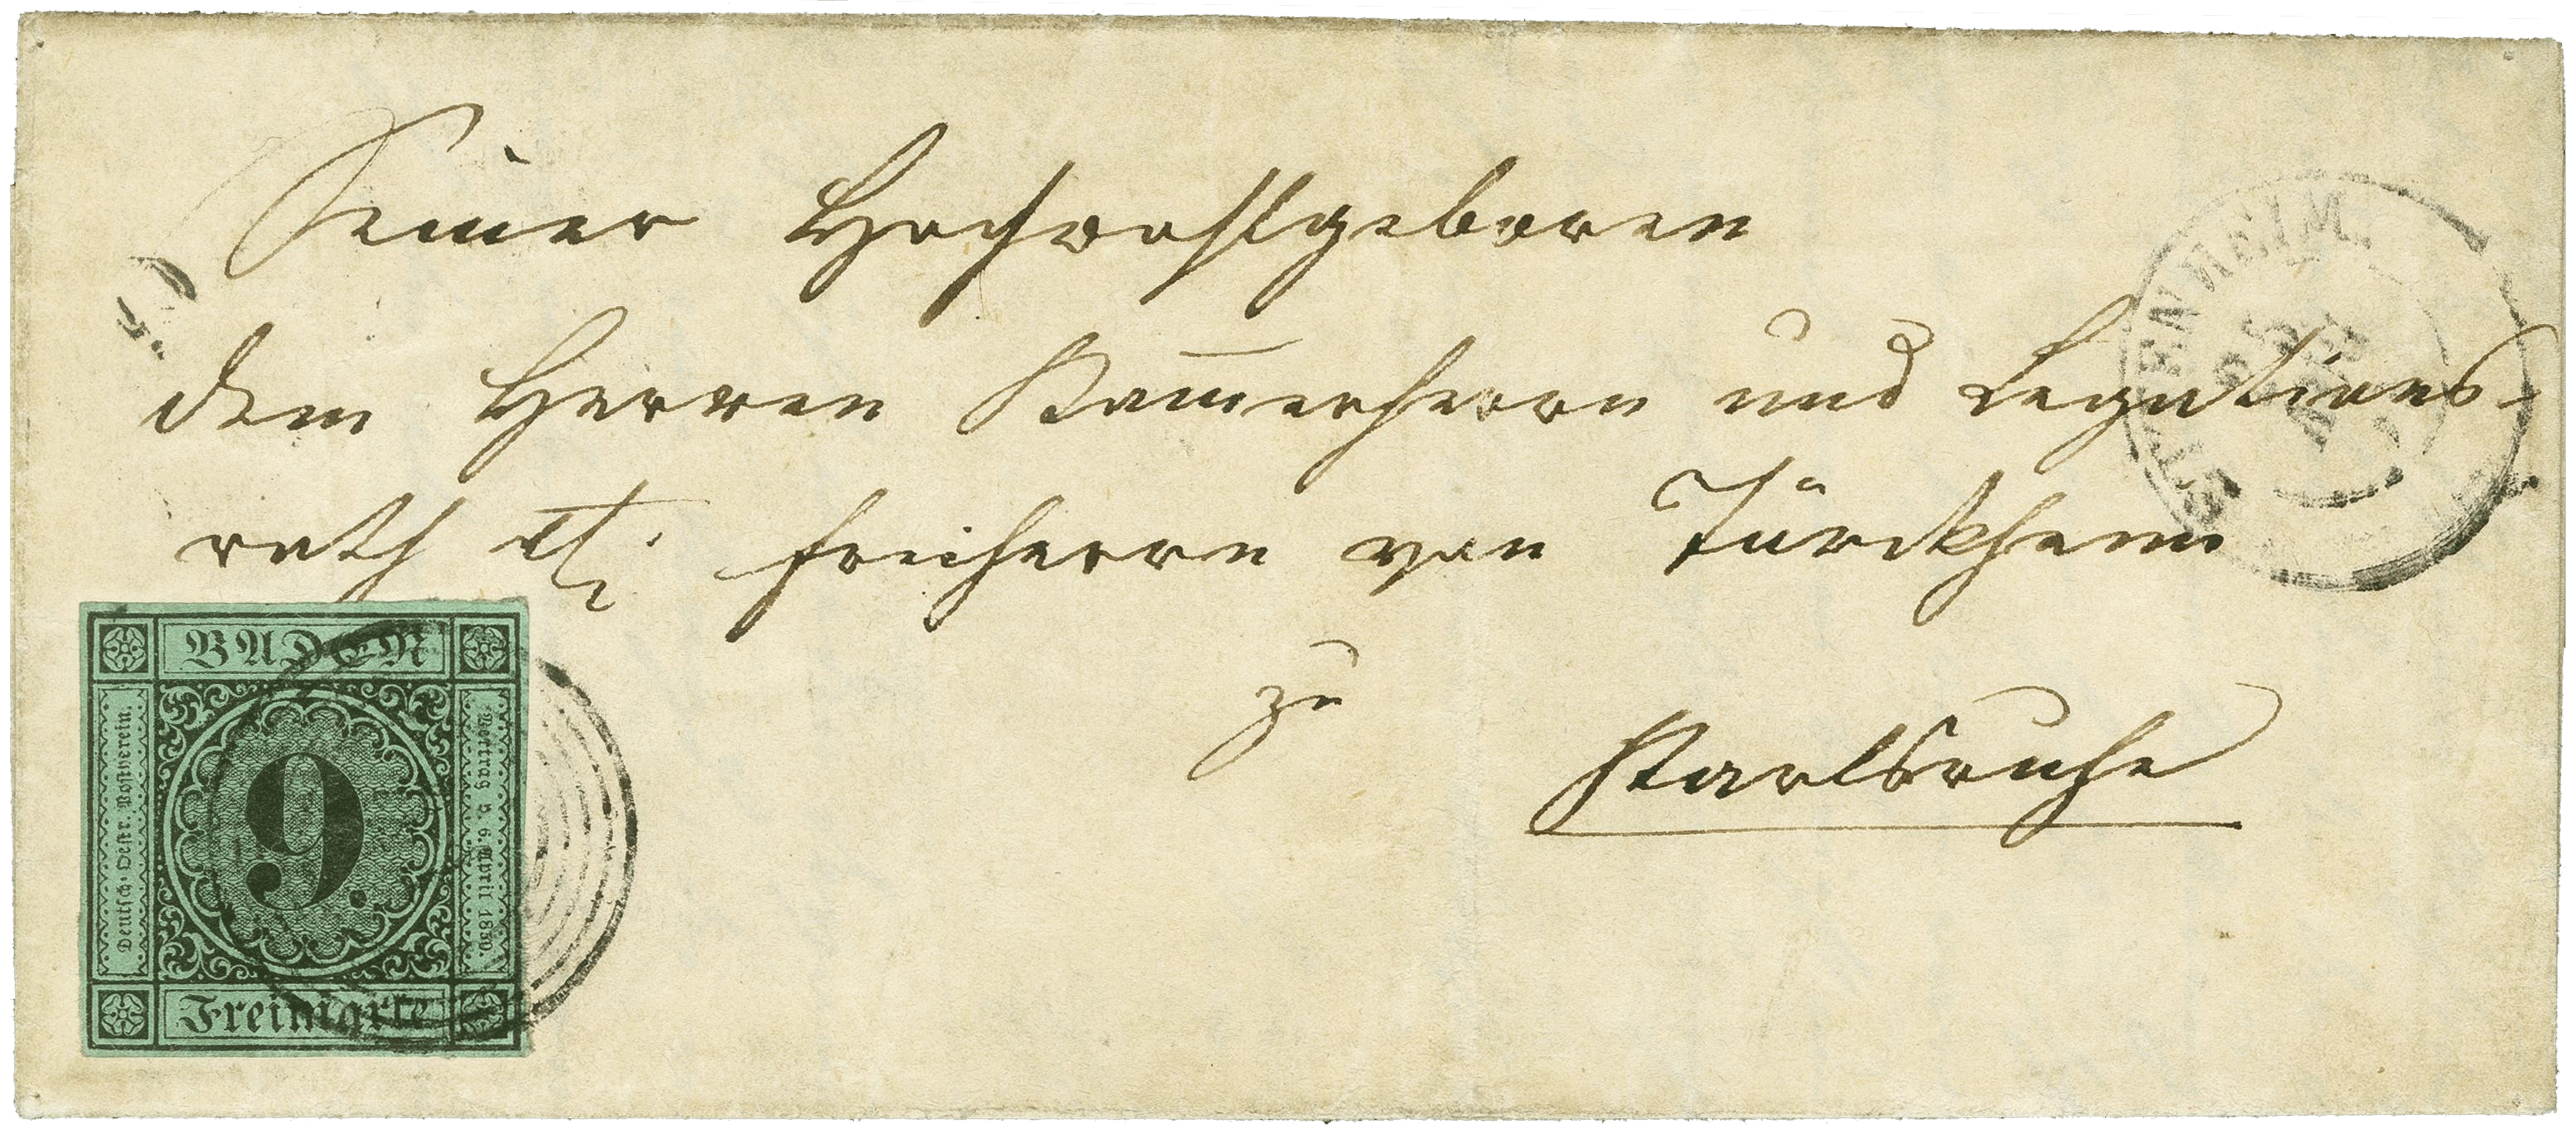 Seiner Hochwohlgeboren
dem Herren Kam̅erherrn und Legations-
rath Freiherrn von Türckheim
zu
Karlsruhe
BADEN
Deutsch-Oestr. Postverein.
9.
Vertrag v. 6. April 1850.
Freimarke
ETTENHEIM.